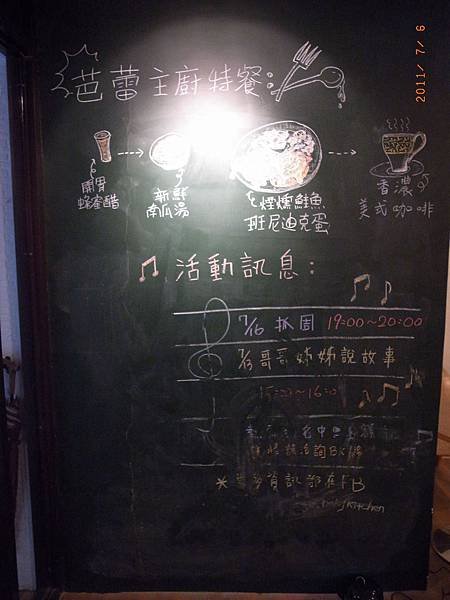 2011/ 7/ 6
芭蕾主廚特餐:
開胃
蜂蜜醋
新鮮
南瓜湯
煙燻鮭魚
班尼迪克蛋
香濃
美式咖啡
活動訊息:
7/16 抓周 19:00~20:00
哥哥姊姊說故事
~16:0
名中
洽詢
* 資訊都在FB
Kitchen